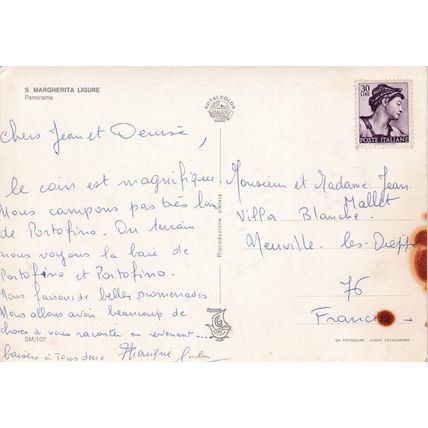 S. MARGHERITA LIGURE
Panorama
ROTALCOLOR
30
LIRE
POSTE ITALIANE
chers Jean et Denise,
le coin est magnifique.
Nous campons pas très loin
de Portofino. Du terrain
nous voyons la baie de
Portofino et Portofino.
Nous faisons de belles promenades.
Nous allons avoir beaucoup de
choses à vous raconter en revenant....
baisers à tous deux
Riproduzione vietata
Monsieur et Madame Jean
Mallet
Villa Blanche
Neuville-les-Dieppe
76
France
SM/107